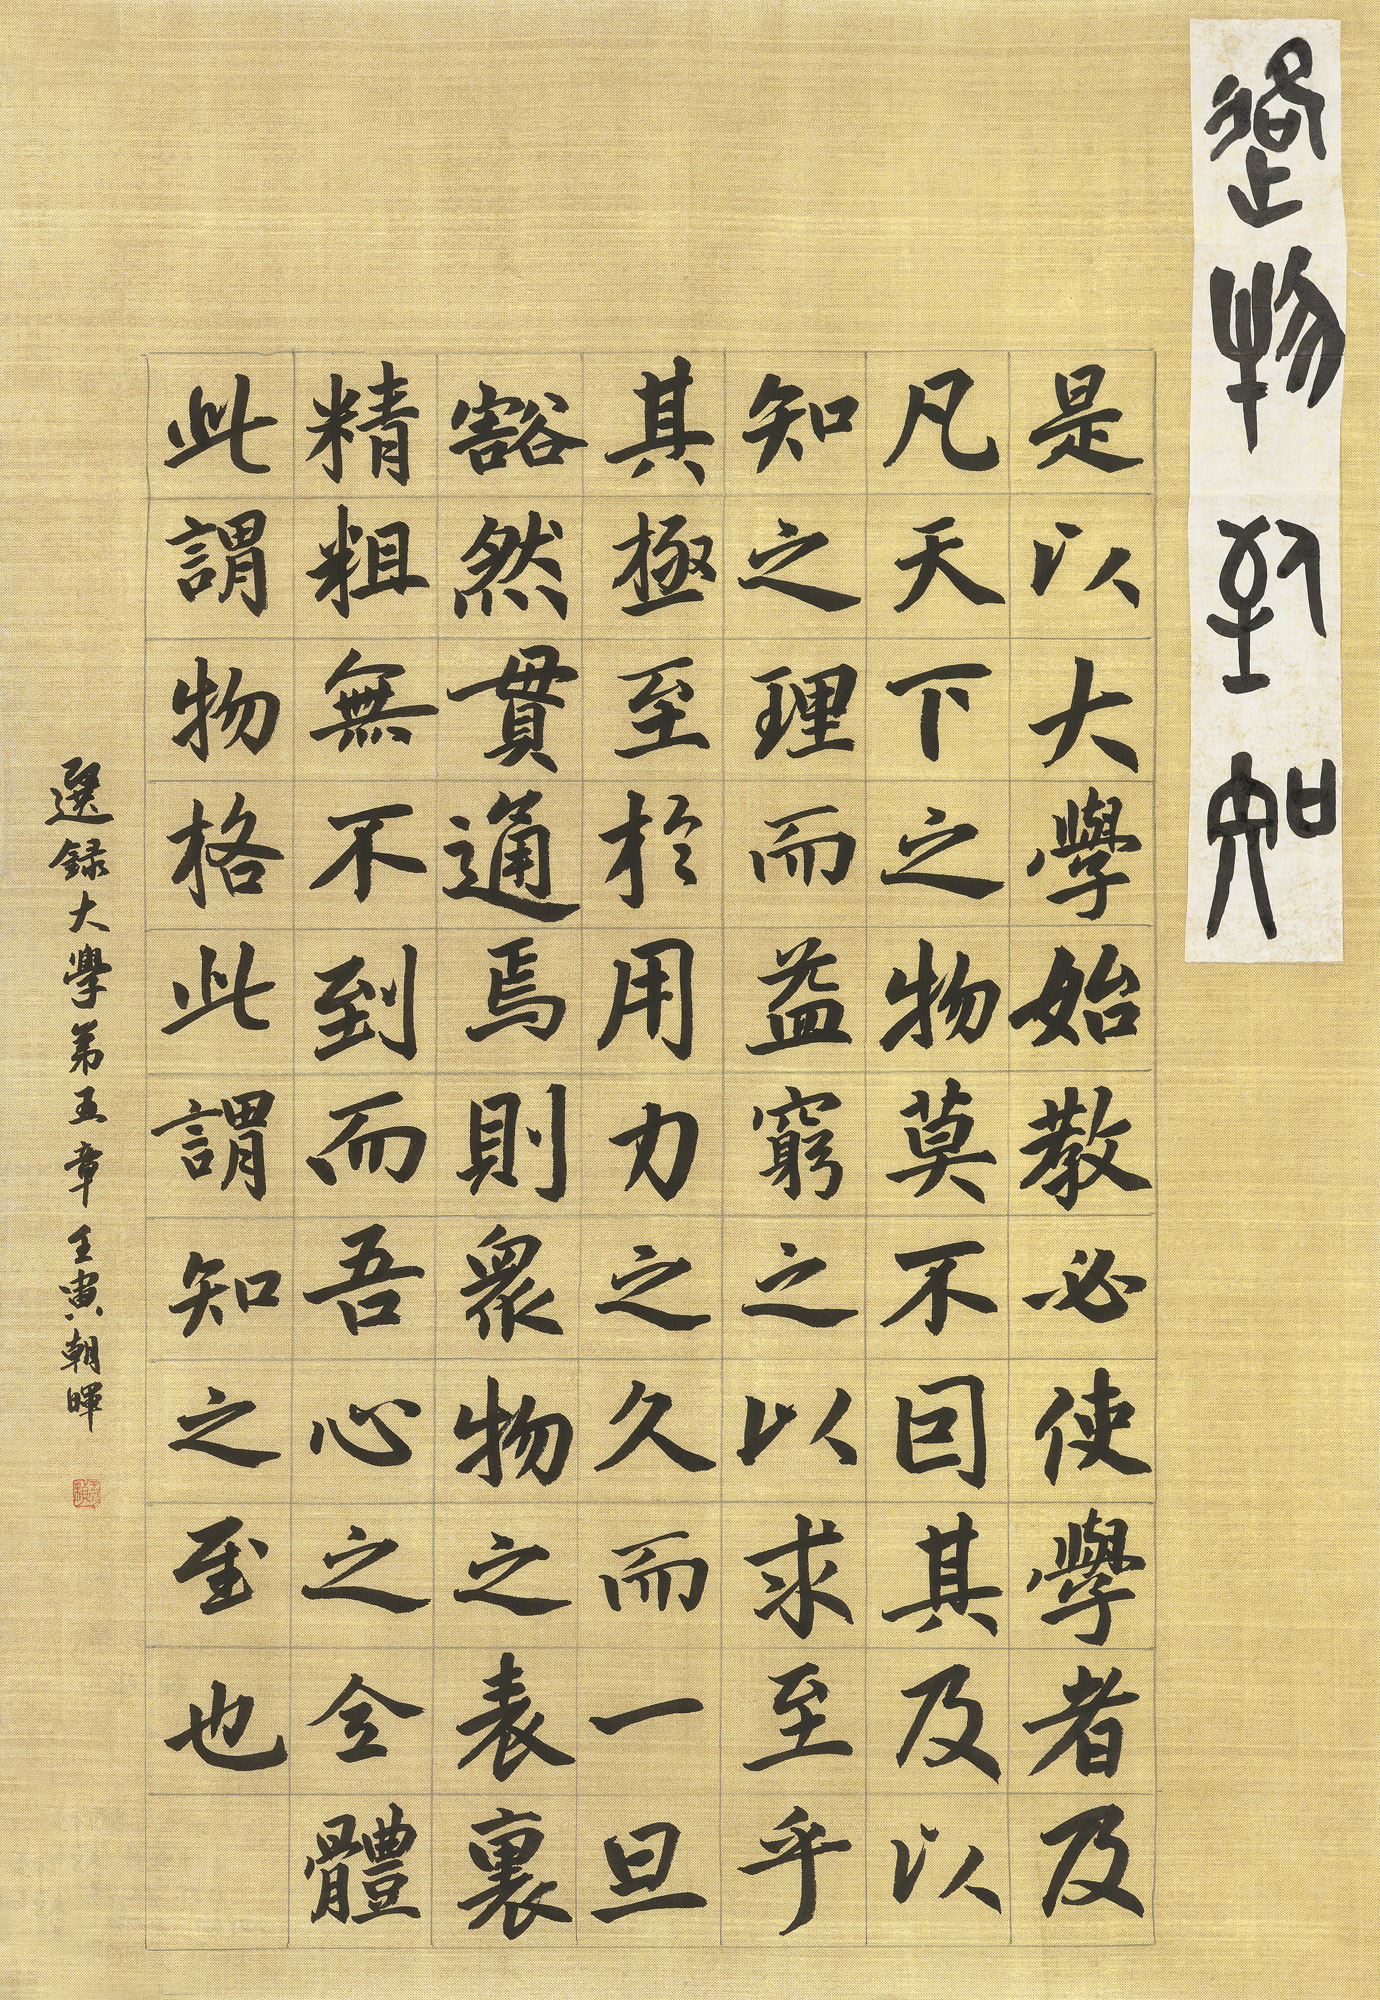 格物致知
是以大學始教必使學者及
凡天下之物莫不囙其及以
知之理而益窮之以求至乎
其極至於用力之久而一旦
豁然貫通焉則衆物之表裏
精粗無不到而吾心之全體
此謂物格此謂知之至也
選録大學第五章壬寅朝暉